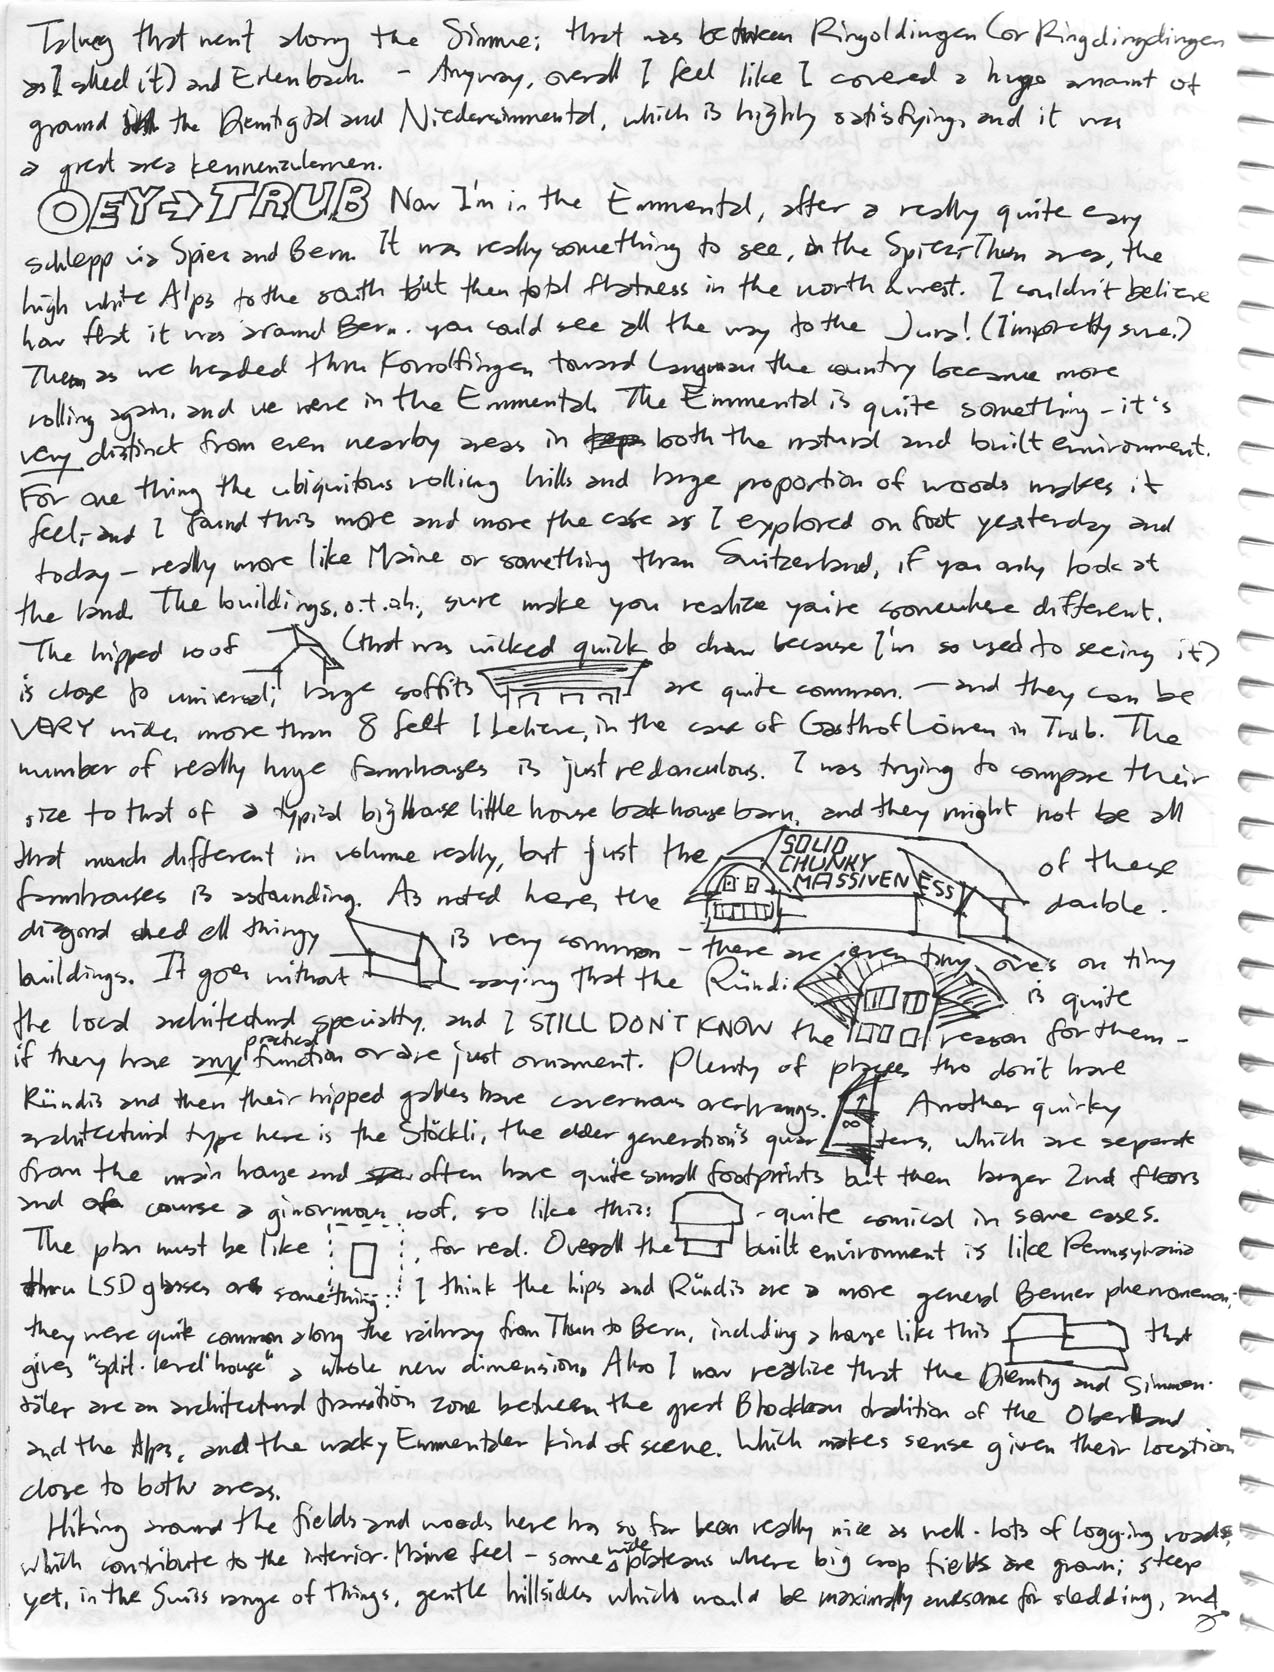 Talweg that went along the Simme; that was between Ringoldingen (or Ringdingdingen
as I called it) and Erlenbach. – Anyway, overall I feel like I covered a huge amount of
ground in the Diemtigtal and Niedersimmental, which is highly satisfying, and it was
a great area kennenzulernen.
OEY→TRUB Now I'm in the Emmental, after a really quite easy
schlepp via Spiez and Bern. It was really something to see, in the Spiez-Thun area, the
high white Alps to the south but then total flatness in the north & west. I couldn't believe
how flat it was around Bern. you could see all the way to the Jura! (I'm pretty sure.)
Then as we headed thru Konolfingen toward Langnau the country became more
rolling again, and we were in the Emmental. The Emmental is quite something – it's
very distinct from even nearby areas in both the natural and built environment.
For one thing the ubiquitous rolling hills and large proportion of woods makes it
feel, – and I found this more and more the case as I explored on foot yesterday and
today – really more like Maine or something than Switzerland, if you only look at
the land. The buildings, o.t.o.h., sure make you realize you're somewhere different.
The hipped roof (that was wicked quick to draw because I'm so used to seeing it)
is close to universal; large soffits are quite common. – and they can be
VERY wide, more than 8 feet I believe, in the case of Gasthof Löwen in Trub. The
number of really huge farmhouses is just redonculous. I was trying to compare their
size to that of a typical big house little house back house barn, and they might not be all
that much different in volume really, but just the SOLID CHUNKY MASSIVENESS of these
farmhouses is astounding. As noted here, the double
diagonal shed ell thingy is very common – there are even tiny ones on tiny
buildings. It goes without saying that the Ründi is quite
the local architectural specialty, and I STILL DON'T KNOW the reason for them –
if they have any practical function or are just ornament. Plenty of places tho don't have
Ründis and then their hipped gables have cavernous overhangs. Another quirky
architectural type here is the Stöckli, the elder generation's quarters, which are separate
from the main house and often have quite small footprints but then larger 2nd floors
and of course a ginormous roof, so like this: – quite comical in some cases.
The plan must be like , for real. Overall the built environment is like Pennsylvania
thru LSD glasses or something. I think the hips and Ründis are a more general Berner phenomenon;
they were quite common along the railway from Thun to Bern, including a house like this that
gives "split-level house" a whole new dimension. Also I now realize that the Diemtig and Simmen-
täler are an architectural transition zone between the great Blockbau tradition of the Oberland
and the Alps, and the wacky Emmentaler kind of scene. Which makes sense given their location
close to both areas.
Hiking around the fields and woods here has so far been really nice as well. Lots of logging roads,
which contribute to the interior-Maine feel – some wide plateaus where big crop fields are grown; steep
yet, in the Swiss range of things, gentle hillsides which would be maximally awesome for sledding, and